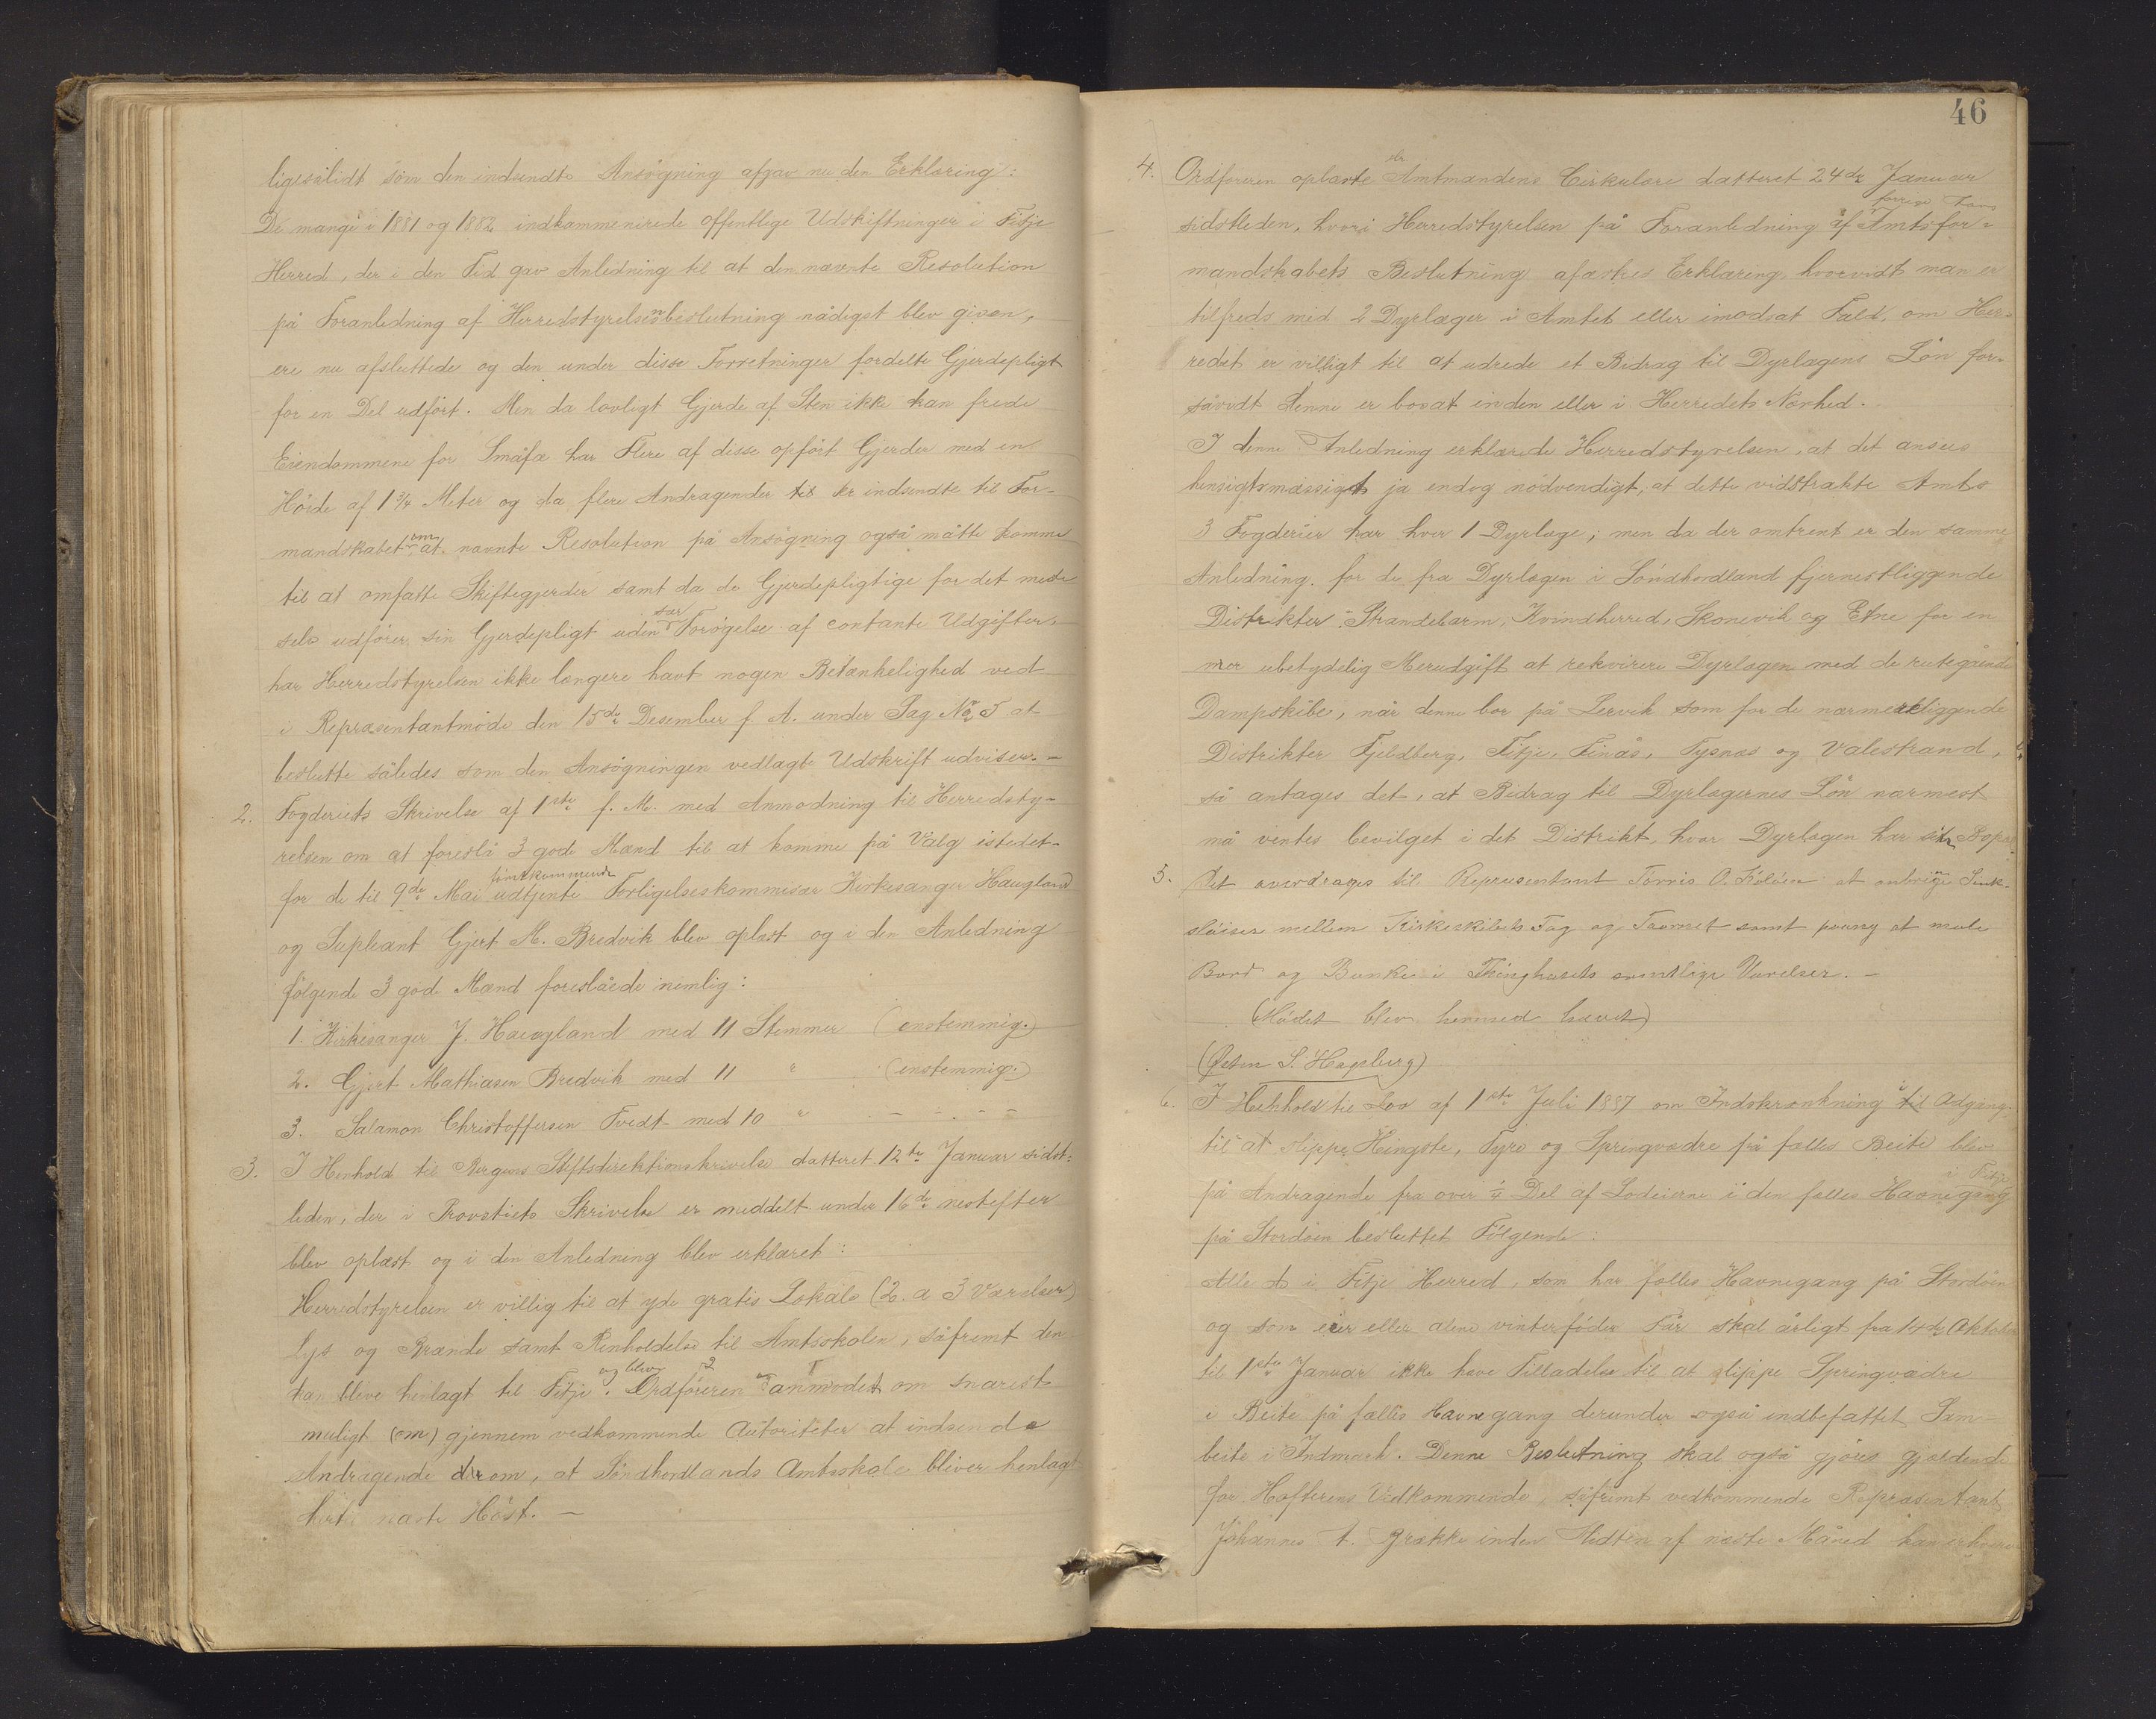 ligesålidt som den indsendte Ansögning afgav nu den Erklæring:
De mange i 1881 og 1882 indkommenirede offentlige Udskiftninger i Fitje
Herred, der i den Tid gav Anledning til at den nævnte Resolution
på Foranledning af Herredstyrelsensbeslutning nådigst blev given,
ere nu afsluttede og den under disse Forretninger fordelte Gjerdepligt
for en Del udfört. Men da lovligt Gjerde af Sten ikke kan frede
Eiendommene for Småfæ har Flere af disse opfört Gjerder med en
Höide af 1 3/4 Meter og da flere Andragender er indsendte til For-
mandskabet om at nævnte Resolution på Ansögning også måtte komme
til at omfatte Skiftegjerder samt da de Gjerdepligtige for det meste
selv udförer sin Gjerdepligt uden sær Forögelse af contante Udgifter,
har Herredstyrelsen ikke længere havt nogen Betænkelighed ved
i Repræsentantmöde den 15de Desember f. A. under Sag No 5 at
beslutte således som den Ansögningen vedlagte Udskrift udviser. -
2. Fogderiets Skrivelse af 1ste f. M. med Anmodning til Herredsty-
relsen om at foreslå 3 gode Mænd til at komme på Valg istedet-
for de til 9de Mai förstkommende udtjente Forligelseskommisær Kirkesanger Haugland
og Supleant Gjert M. Bredvik blev oplæst og i den Anledning
fölgende 3 gode Mænd foreslåede nemlig:
1. Kirkesanger J. Haugland med 11 Stemmer (enstemmig.)
2. Gjert Mathiasen Bredvik med 11 " (enstemmig.)
3. Salamon Christoffersen Tvedt med 10 " - - - -
3. I Henhold til Bergens Stiftsdirektionskrivelse datteret 12te Januar sidst-
leden, der i Provstiets Skrivelse er meddelt under 16de nestefter
blev oplæst og i den Anledning blev erklæret:
Herredstyrelsen er villig til at yde gratis Lokale (2 a 3 Værelser)
Lys og Brænde samt Renholdelse til Amtsskolen, såfremt den
kan blive henlagt til Fitje og blev Ordföreren anmodet om snarest
muligt (om) gjennem vedkommende Autoriteter at indsende
Andragende derom, at Söndhordlands Amtsskole bliver henlagt
hertil næste Höst. -
46
4. Ordföreren oplæste Hr Amtmandens Cirkulære datteret 24de Januar
sidstleden, hvori Herredstyrelsen på Foranledning af forrige Amtsfor-
mandskabets Beslutning afæskes Erklæring, hvorvidt man er
tilfreds med 2 Dyrlæger i Amtet eller imodsat Fald, om Her-
redet er villigt til at udrede et Bidrag til Dyrlægens Lön for-
såvidt denne er bosat inden eller i Herredets Nærhed.
I denne Anledning erklærede Herredstyrelsen, at det ansees
hensigtsmæssigt ja endog nödvendigt, at dette vidstrakte Amts
3 Fogderier har hver 1 Dyrlæge; men da der omtrent er den samme
Anledning for de fra Dyrlægen i Söndhordland fjernestliggende
Distrikter: Strandebarm, Kvindherred, Skonevik og Etne for en
mer ubetydelig Merudgift at rekvirere Dyrlægen med de rutegående
Dampskibe, når denne bor på Lervik som for de nærmestliggende
Distrikter Fjeldberg, Fitje, Finås, Tysnæs og Valestrand,
så antages det, at Bidrag til Dyrlægernes Lön nærmest
må ventes bevilget i det Distrikt, hvor Dyrlægen har sin Bopæl
5. Det overdrages til Repræsentant Torris O. at anbringe
mellem Kirkeskibets Tag og Taarnet samt at male
Bord og Bænke i Thinghusets samtlige Værelser. -
(Mödet blev hermed hævet)
(Østen S. Hagsberg)
6. I Henhold til Lov af 1ste Juli 1887 om Indskrænkning i Adgang
til at slippe Hingste, Tyre og Springvædre på fælles Beite blev
på Andragende fra over 1/4 Del af Lodeierne i den fælles Havnegang i Fitje
på Stordöen besluttet Fölgende:
Alle i Fitje Herred, som har fælles Havnegang på Stordöen
og som eier eller alene vinterföder Får skal årligt fra 14de Oktober
til 1ste Januar ikke have Tilladelse til at slippe Springvædre
i Beite på fælles Havnegang derunder også indbefattet Sam-
beite i Indmark. Denne Beslutning skal også gjöres gjældende
for Vedkommende, såfremt vedkommende Repræsentant
Johannes T. Brække inden Midten af næste Måned kan erhverve